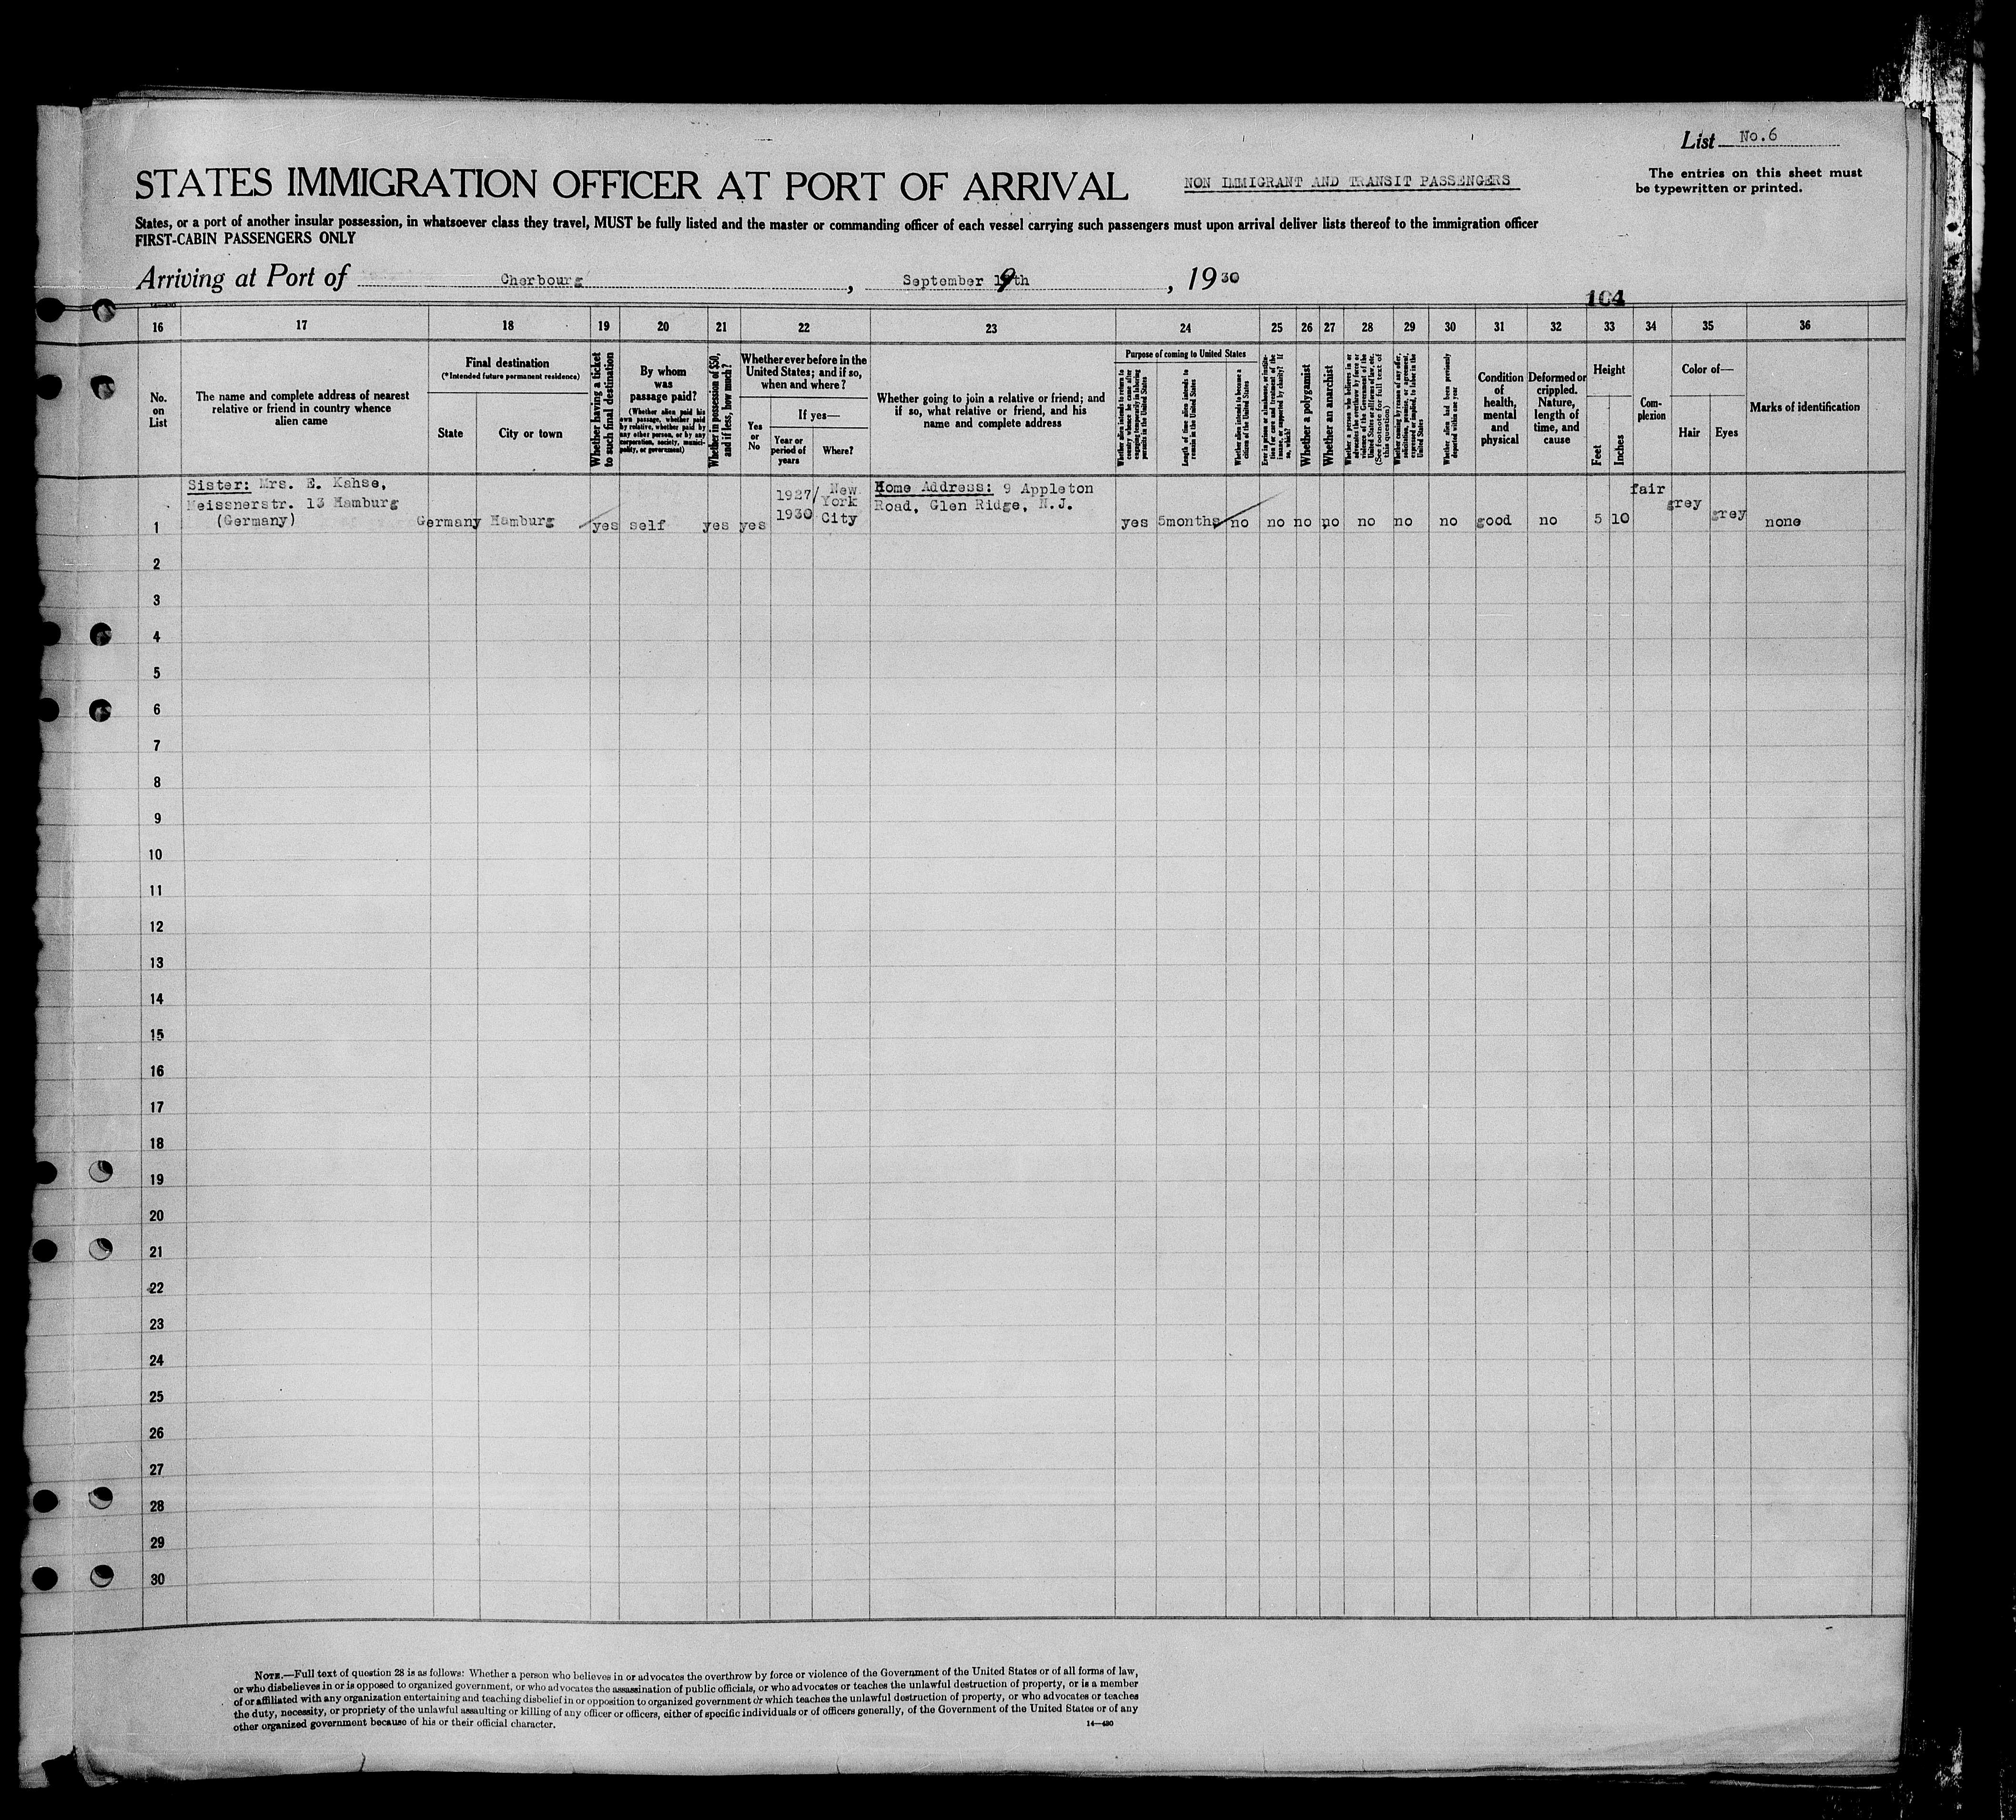 List No.6
STATES IMMIGRATION OFFICER AT PORT OF ARRIVAL NON IMMIGRANT AND TRANSIT PASSENGERS
The entries on this sheet must
be typewritten or printed.
States, or a port of another insular possession, in whatsoever class they travel, MUST be fully listed and the master or commanding officer of each vessel carrying such passengers must upon arrival deliver lists thereof to the immigration officer
FIRST-CABIN PASSENGERS ONLY
Arriving at Port of Cherbourg, September 19th, 1930
104
16 17 18 19 20 21 22 23 24 25 26 27 28 29 30 31 32 33 34 35 36
No.
on
List
The name and complete address of nearest
relative or friend in country whence
alien came
Final destination
(*Intended future permanent residence)
State
City or town
Whether having a ticket
to such final destination
By whom
was
passage paid?
(Whether alien paid his
own passage, whether paid
by relative, whether paid by
any other person, or by any
corporation, society, munici-
pality, or government)
Whether in possession of $50,
and if less, how much?
Whether ever before in the
United States; and if so,
when and where?
Yes
or
No
If yes—
Year or
period of
years
Where?
Whether going to join a relative or friend; and
if so, what relative or friend, and his
name and complete address
Purpose of coming to United States
Whether alien intends to return to
country whence he came after
engaging temporarily in laboring
pursuits in the United States
Length of time alien intends to
remain in the United States
Whether alien intends to become a
citizen of the United States
Ever in prison or almshouse, or institu-
tion for care and treatment of the
insane, or supported by charity? If
so, which?
Whether a polygamist
Whether an anarchist
Whether a person who believes in or
advocates the overthrow by force or
violence of the Government of the
United States or all forms of law, etc.
(See footnote for full text of
this question)
Whether coming by reason of any offer,
solicitation, promise, or agreement,
expressed or implied, to labor in the
United States
Whether alien had been previously
deported within one year
Condition
of
health,
mental
and
physical
Deformed or
crippled.
Nature,
length of
time, and
cause
Height
Feet
Inches
Com-
plexion
Color of—
Hair
Eyes
Marks of identification
Sister: Mrs. E. Kahse,
Meissnerstr. 13 Hamburg
(Germany)
1927/
1930
New
York
City
Home Address: 9 Appleton
Road, Glen Ridge, N.J.
fair
grey
1 Germany Hamburg yes self yes yes yes 5months no no no no no no no good no 5 10 grey none
2
3
4
5
6
7
8
9
10
11
12
13
14
15
16
17
18
19
20
21
22
23
24
25
26
27
28
29
30
NOTE.—Full text of question 28 is as follows: Whether a person who believes in or advocates the overthrow by force or violence of the Government of the United States or of all forms of law,
or who disbelieves in or is opposed to organized government, or who advocates the assassination of public officials, or who advocates or teaches the unlawful destruction of property, or is a member
of or affiliated with any organization entertaining and teaching disbelief in or opposition to organized government or which teaches the unlawful destruction of property, or who advocates or teaches
the duty, necessity, or propriety of the unlawful assaulting or killing of any officer or officers, either of specific individuals or of officers generally, of the Government of the United States or of any
other organized government because of his or their official character.
14—430